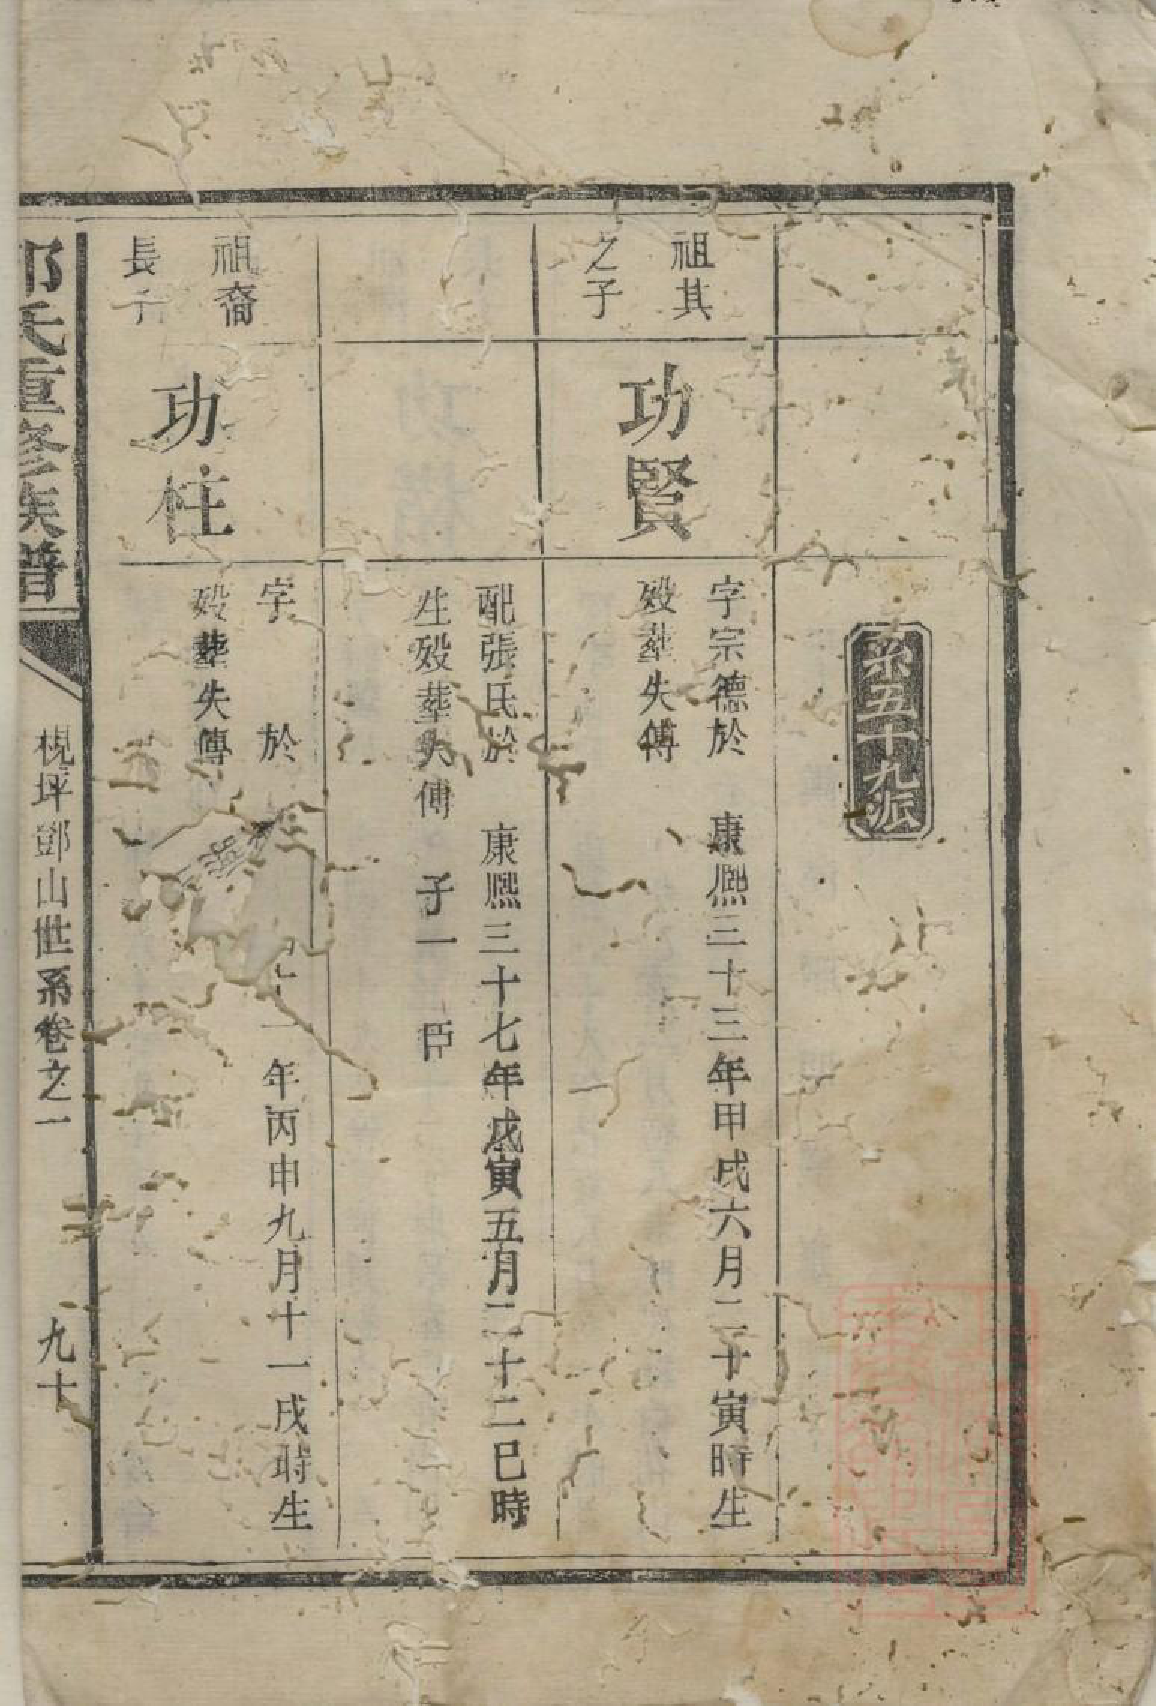 系五十九派
祖其
之子
功賢
字宗德於　康熙三十三年甲戌六月二十寅時生
殁塟失傳
配張氏於　康熙三十七年戊寅五月二十二巳時
生殁塟失傳　子一　臣
祖裔
長子
功柱
字　於　十一年丙申九月十一戌時生
殁塟失傳
氏重修族譜
梘坪鄧山世系卷之一
九十